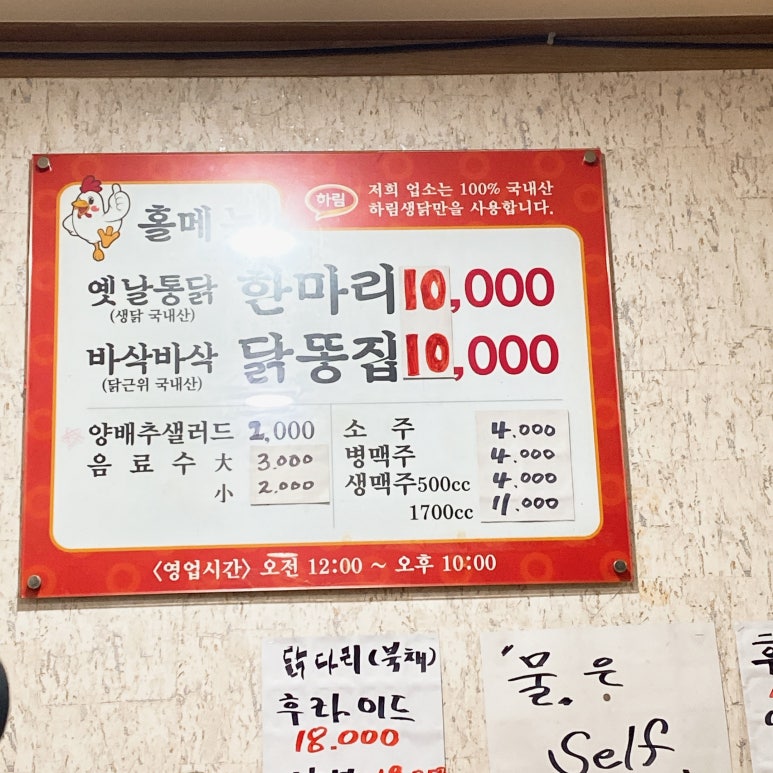 하림
저희 업소는 100% 국내산
하림생닭만을 사용합니다.
홀메
옛날통닭 한마리 10,000
(생닭 국내산)
바삭바삭 닭똥집 10,000
(닭근위 국내산)
양배추샐러드 2,000
음료수 大 3.000
小 2.000
소주 4.000
병맥주 4.000
생맥주 500cc 4.000
1700cc 11.000
<영업시간> 오전 12:00 ~ 오후 10:00
닭다리(북채)
후라이드
18.000
물은
Self